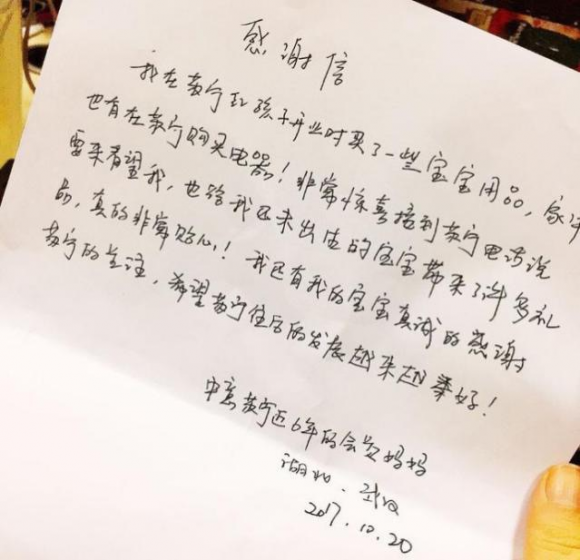 感谢信
我在苏宁红孩子开业时买了一些宝宝用品，家中
也有在苏宁购买电器！非常惊喜接到苏宁电话说
要来看望我，也给我还未出生的宝宝带来了许多礼
品，真的非常贴心！我还有我的宝宝真诚的感谢
苏宁的关注，希望苏宁往后的发展越来越好！
苏宁近6年的会员妈妈
2017.10.20